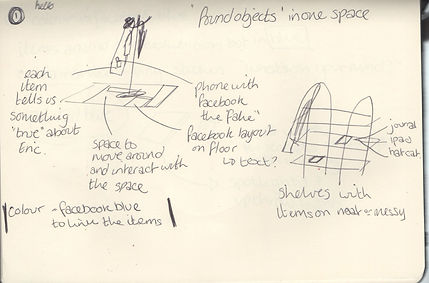 hello
'found objects' in one space
each
item
tells us
something
"true" about
Eric.
phone with
facebook
the "fake"
facebook layout
on floor
↳ text?
space to
move around
and interact with
the space
colour - facebook blue
to link the items
journal
ipad
haircut
shelves with
items on neat messy